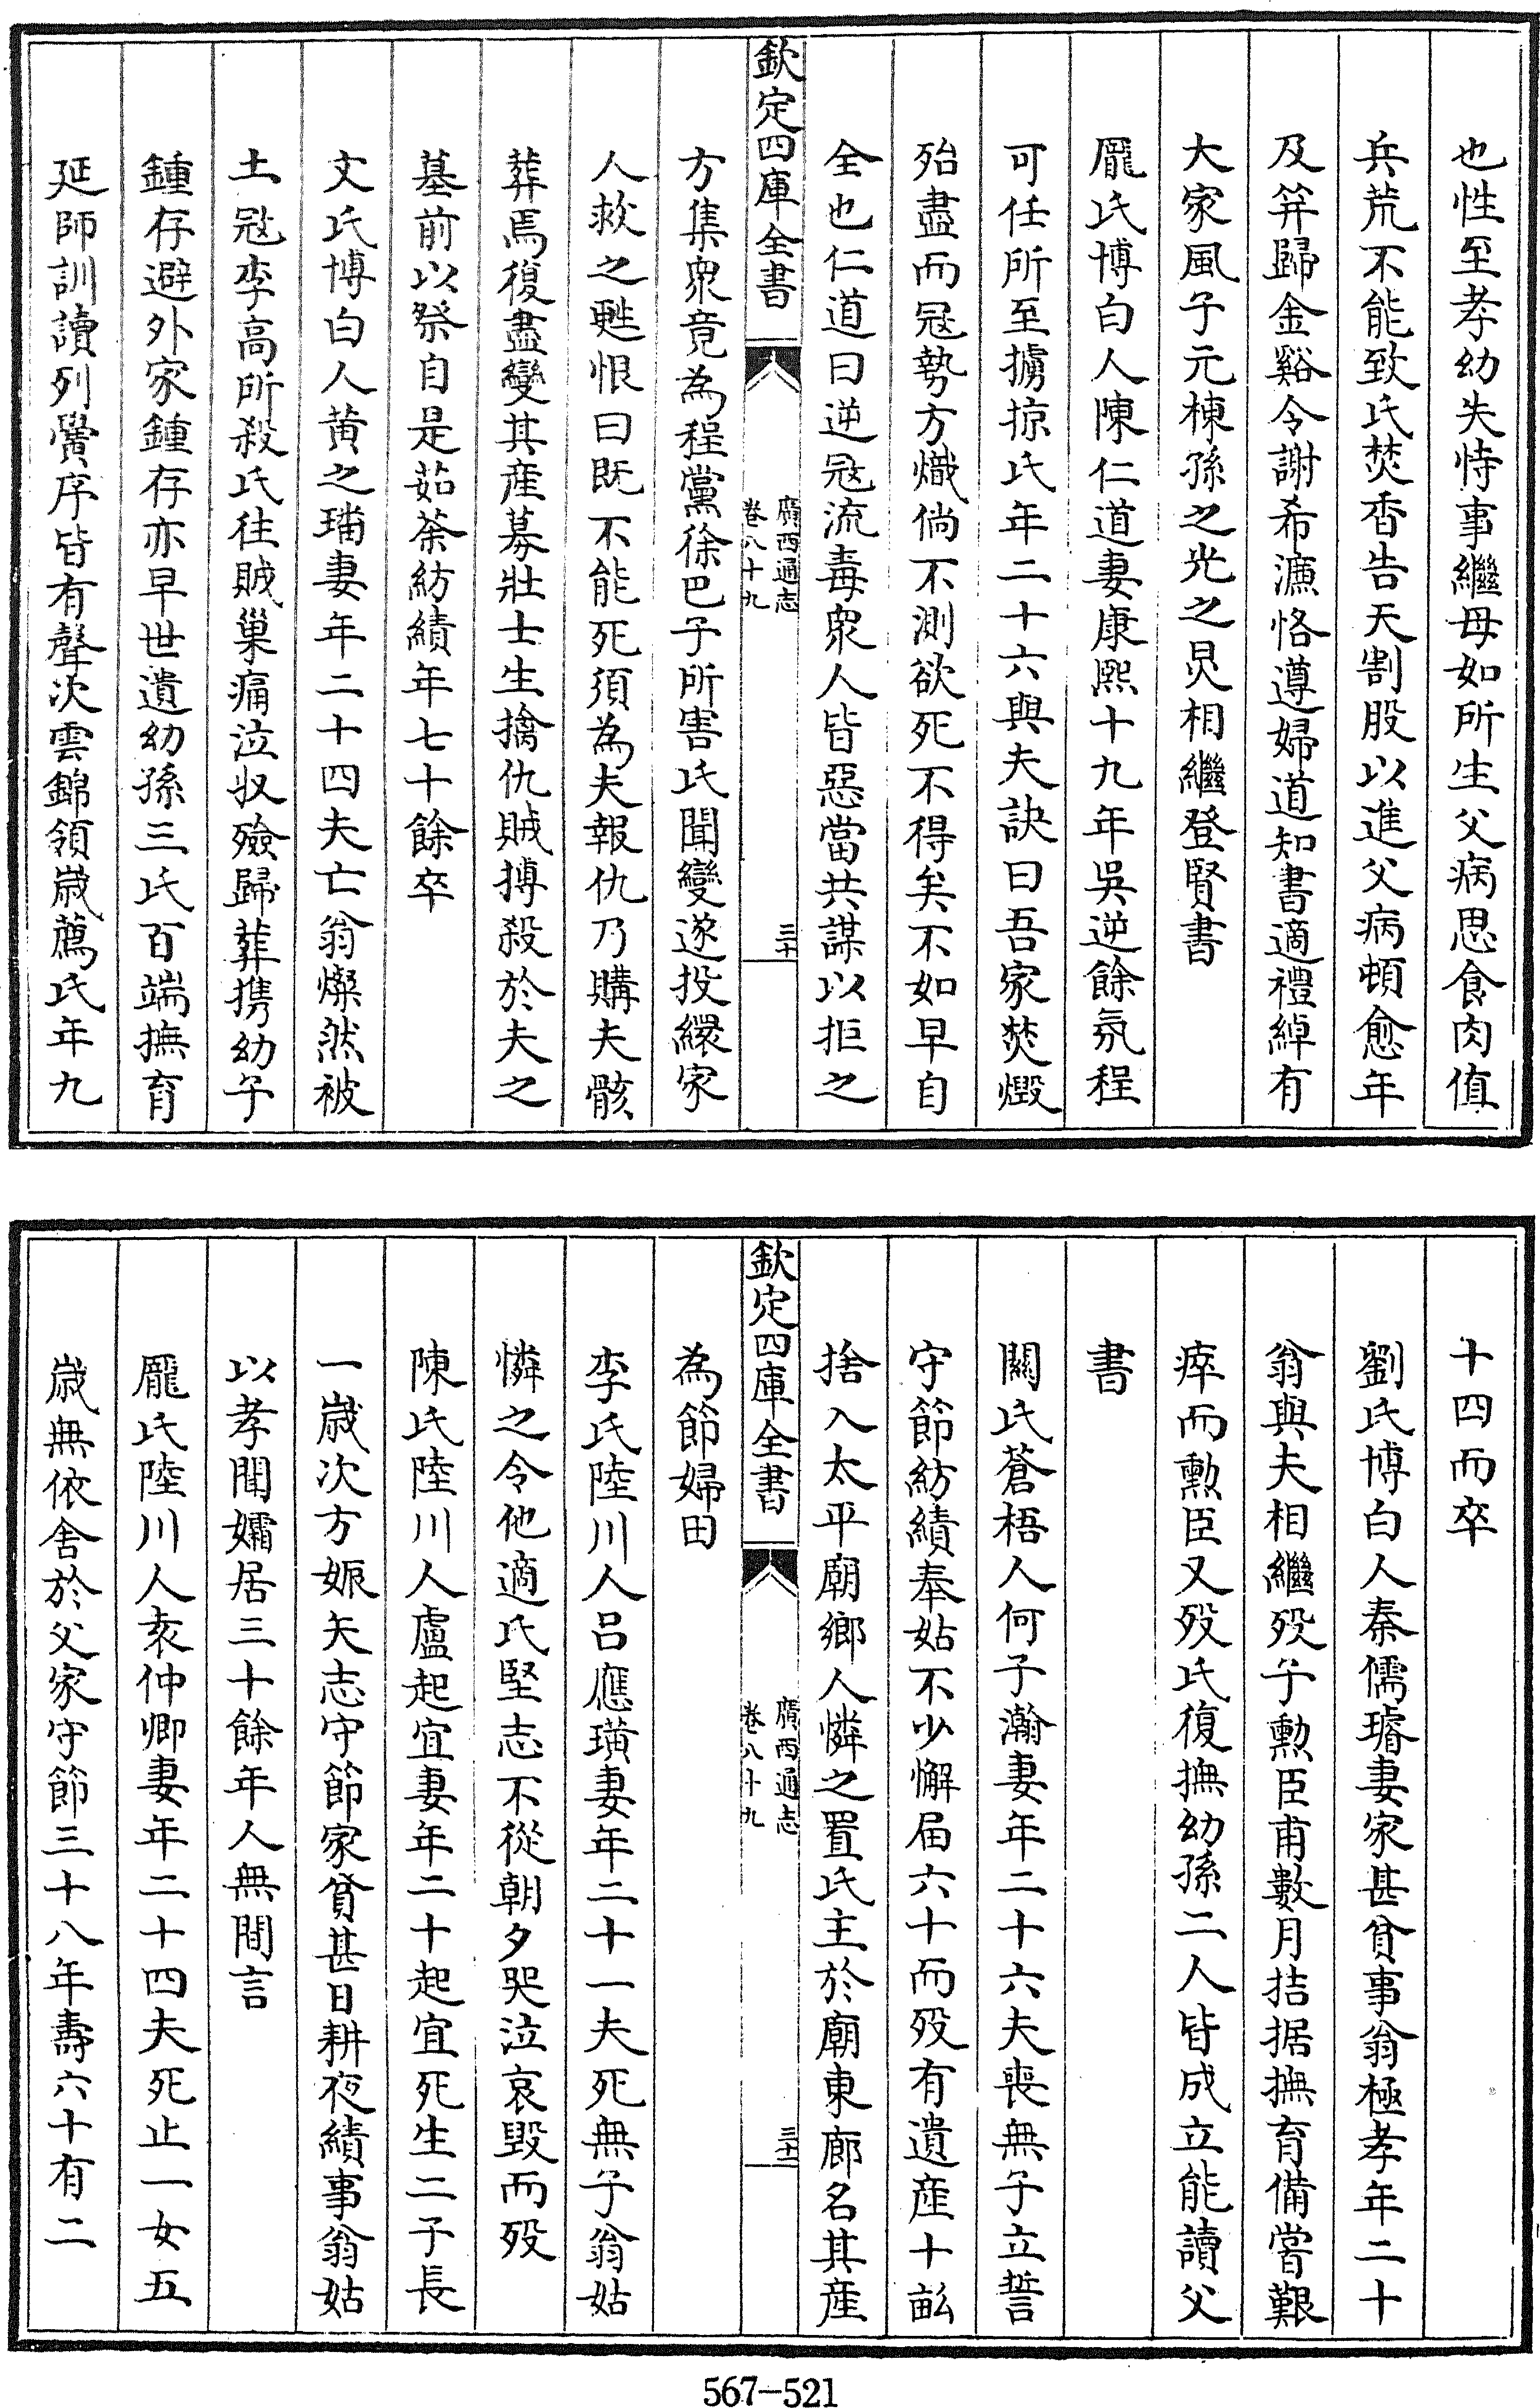 也性至孝幼失恃事繼母如所生父病思食肉值
兵荒不能致氏焚香告天割股以進父病頓愈年
及笄歸金谿令謝希濂恪遵婦道知書適禮綽有
大家風子元棟孫之光之炅相繼登賢書
龎氏博白人陳仁道妻康熙十九年吳逆餘氛程
可任所至擄掠氏年二十六與夫訣曰吾家焚燬
殆盡而冦勢方熾倘不測欲死不得矣不如早自
全也仁道曰逆冦流毒衆人皆惡當共謀以拒之
欽定四庫全書
廣西通志
卷八十九
三十
方集衆竟為程黨徐巴子所害氏聞變遂投繯家
人救之甦恨曰既不能死須為夫報仇乃購夫骸
葬焉復盡變其産募壯士生擒仇賊搏殺於夫之
墓前以祭自是茹荼紡績年七十餘卒
文氏博白人黄之瑞妻年二十四夫亡翁燦然被
土冦李高所殺氏往賊巢痛泣収殮歸葬携幼子
鍾存避外家鍾存亦早世遺幼孫三氏百端撫育
延師訓讀列黌序皆有聲次雲錦領嵗薦氏年九
十四而卒
劉氏博白人秦儒璿妻家甚貧事翁極孝年二十
翁與夫相繼殁子勲臣甫數月拮据撫育備嘗艱
瘁而勲臣又殁氏復撫幼孫二人皆成立能讀父
書
關氏蒼梧人何子瀚妻年二十六夫喪無子立誓
守節紡績奉姑不少懈届六十而殁有遺産十畝
捨入太平廟鄉人憐之置氏主於廟東廊名其産
欽定四庫全書
廣西通志
卷八十九
三十一
為節婦田
李氏陸川人呂應璜妻年二十一夫死無子翁姑
憐之令他適氏堅志不從朝夕哭泣哀毁而殁
陳氏陸川人盧起宜妻年二十起宜死生二子長
一嵗次方娠矢志守節家貧甚日耕夜績事翁姑
以孝聞孀居三十餘年人無間言
龎氏陸川人袁仲卿妻年二十四夫死止一女五
嵗無依舍於父家守節三十八年壽六十有二
567-521